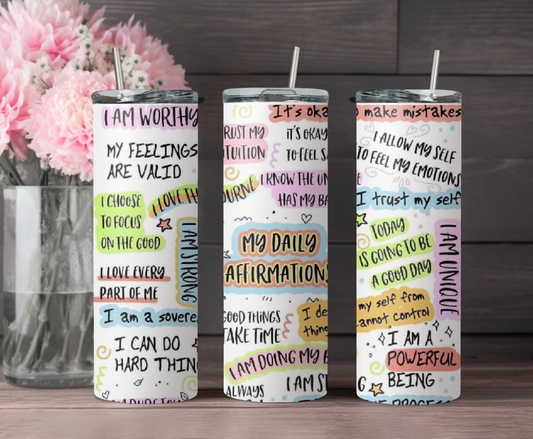 I AM WORTHY
MY FEELINGS
ARE VALID
I CHOOSE
TO FOCUS
ON THE GOOD
I LOVE TH
I AM STRONG
I LOVE EVERY
PART OF ME
I am a sovere
I CAN DO
HARD THIN
It's oka
RUST MY
TUITION
IT'S OKAY
TO FEEL SA
OURNE
I KNOW THE UN
HAS MY BA
MY DAILY
AFFIRMATIONS
GOOD THINGS
TAKE TIME
I de
thing
I AM DOING MY B
ALWAYS
I AM ST
o make mistakes
I ALLOW MY SELF
TO FEEL MY EMOTIONS
I trust my self
TODAY
IS GOING TO BE
A GOOD DAY
I AM UNIQUE
my self from
annot control
I AM A
POWERFUL
BEING